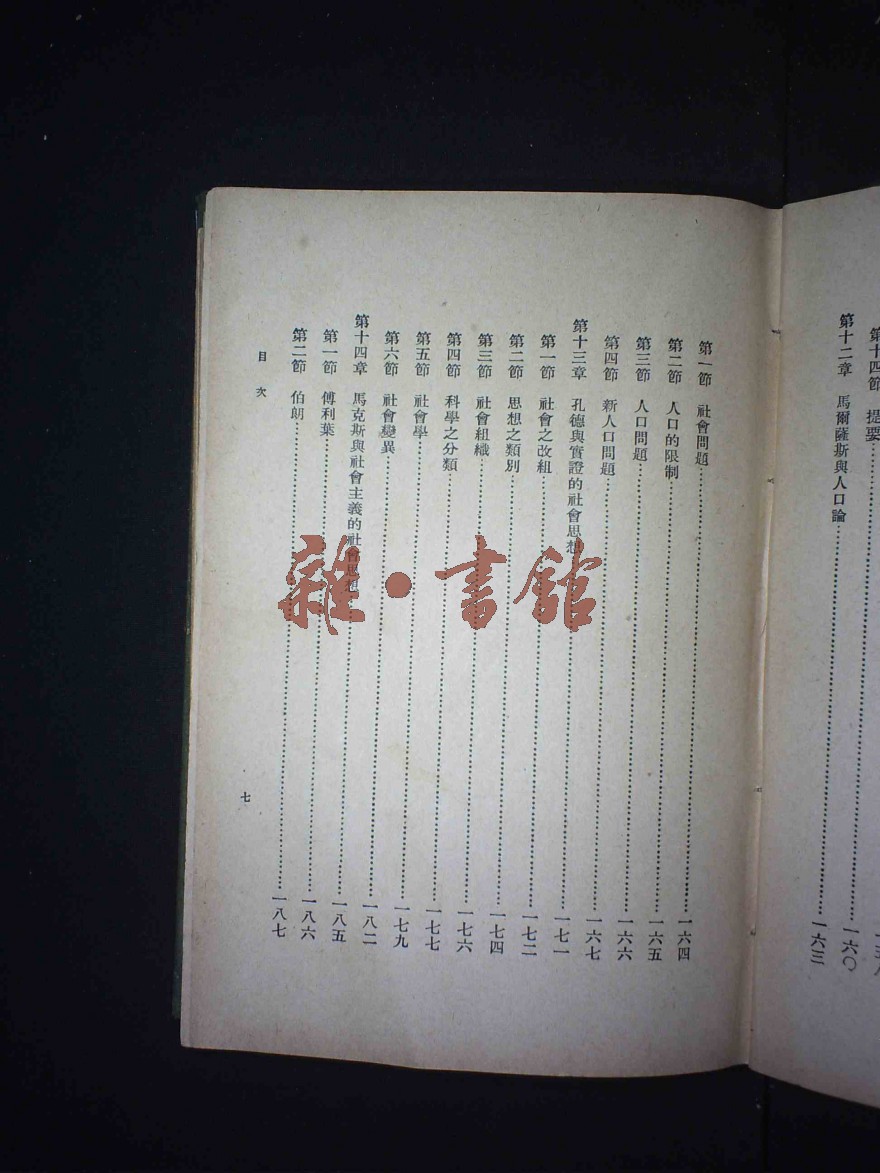 第十四節 提要 一六〇
第十二章 馬爾薩斯與人口論 一六三
第一節 社會問題 一六四
第二節 人口的限制 一六五
第三節 人口問題 一六六
第四節 新人口問題 一六七
第十三章 孔德與實證的社會思想 一七一
第一節 社會之改組 一七二
第二節 思想之類別 一七四
第三節 社會組織 一七六
第四節 科學之分類 一七七
第五節 社會學 一七九
第六節 社會變異 一八二
第十四章 馬克斯與社會主義的社會思想 一八五
第一節 傅利葉 一八六
第二節 伯朗 一八七
目次
七
雜·書館